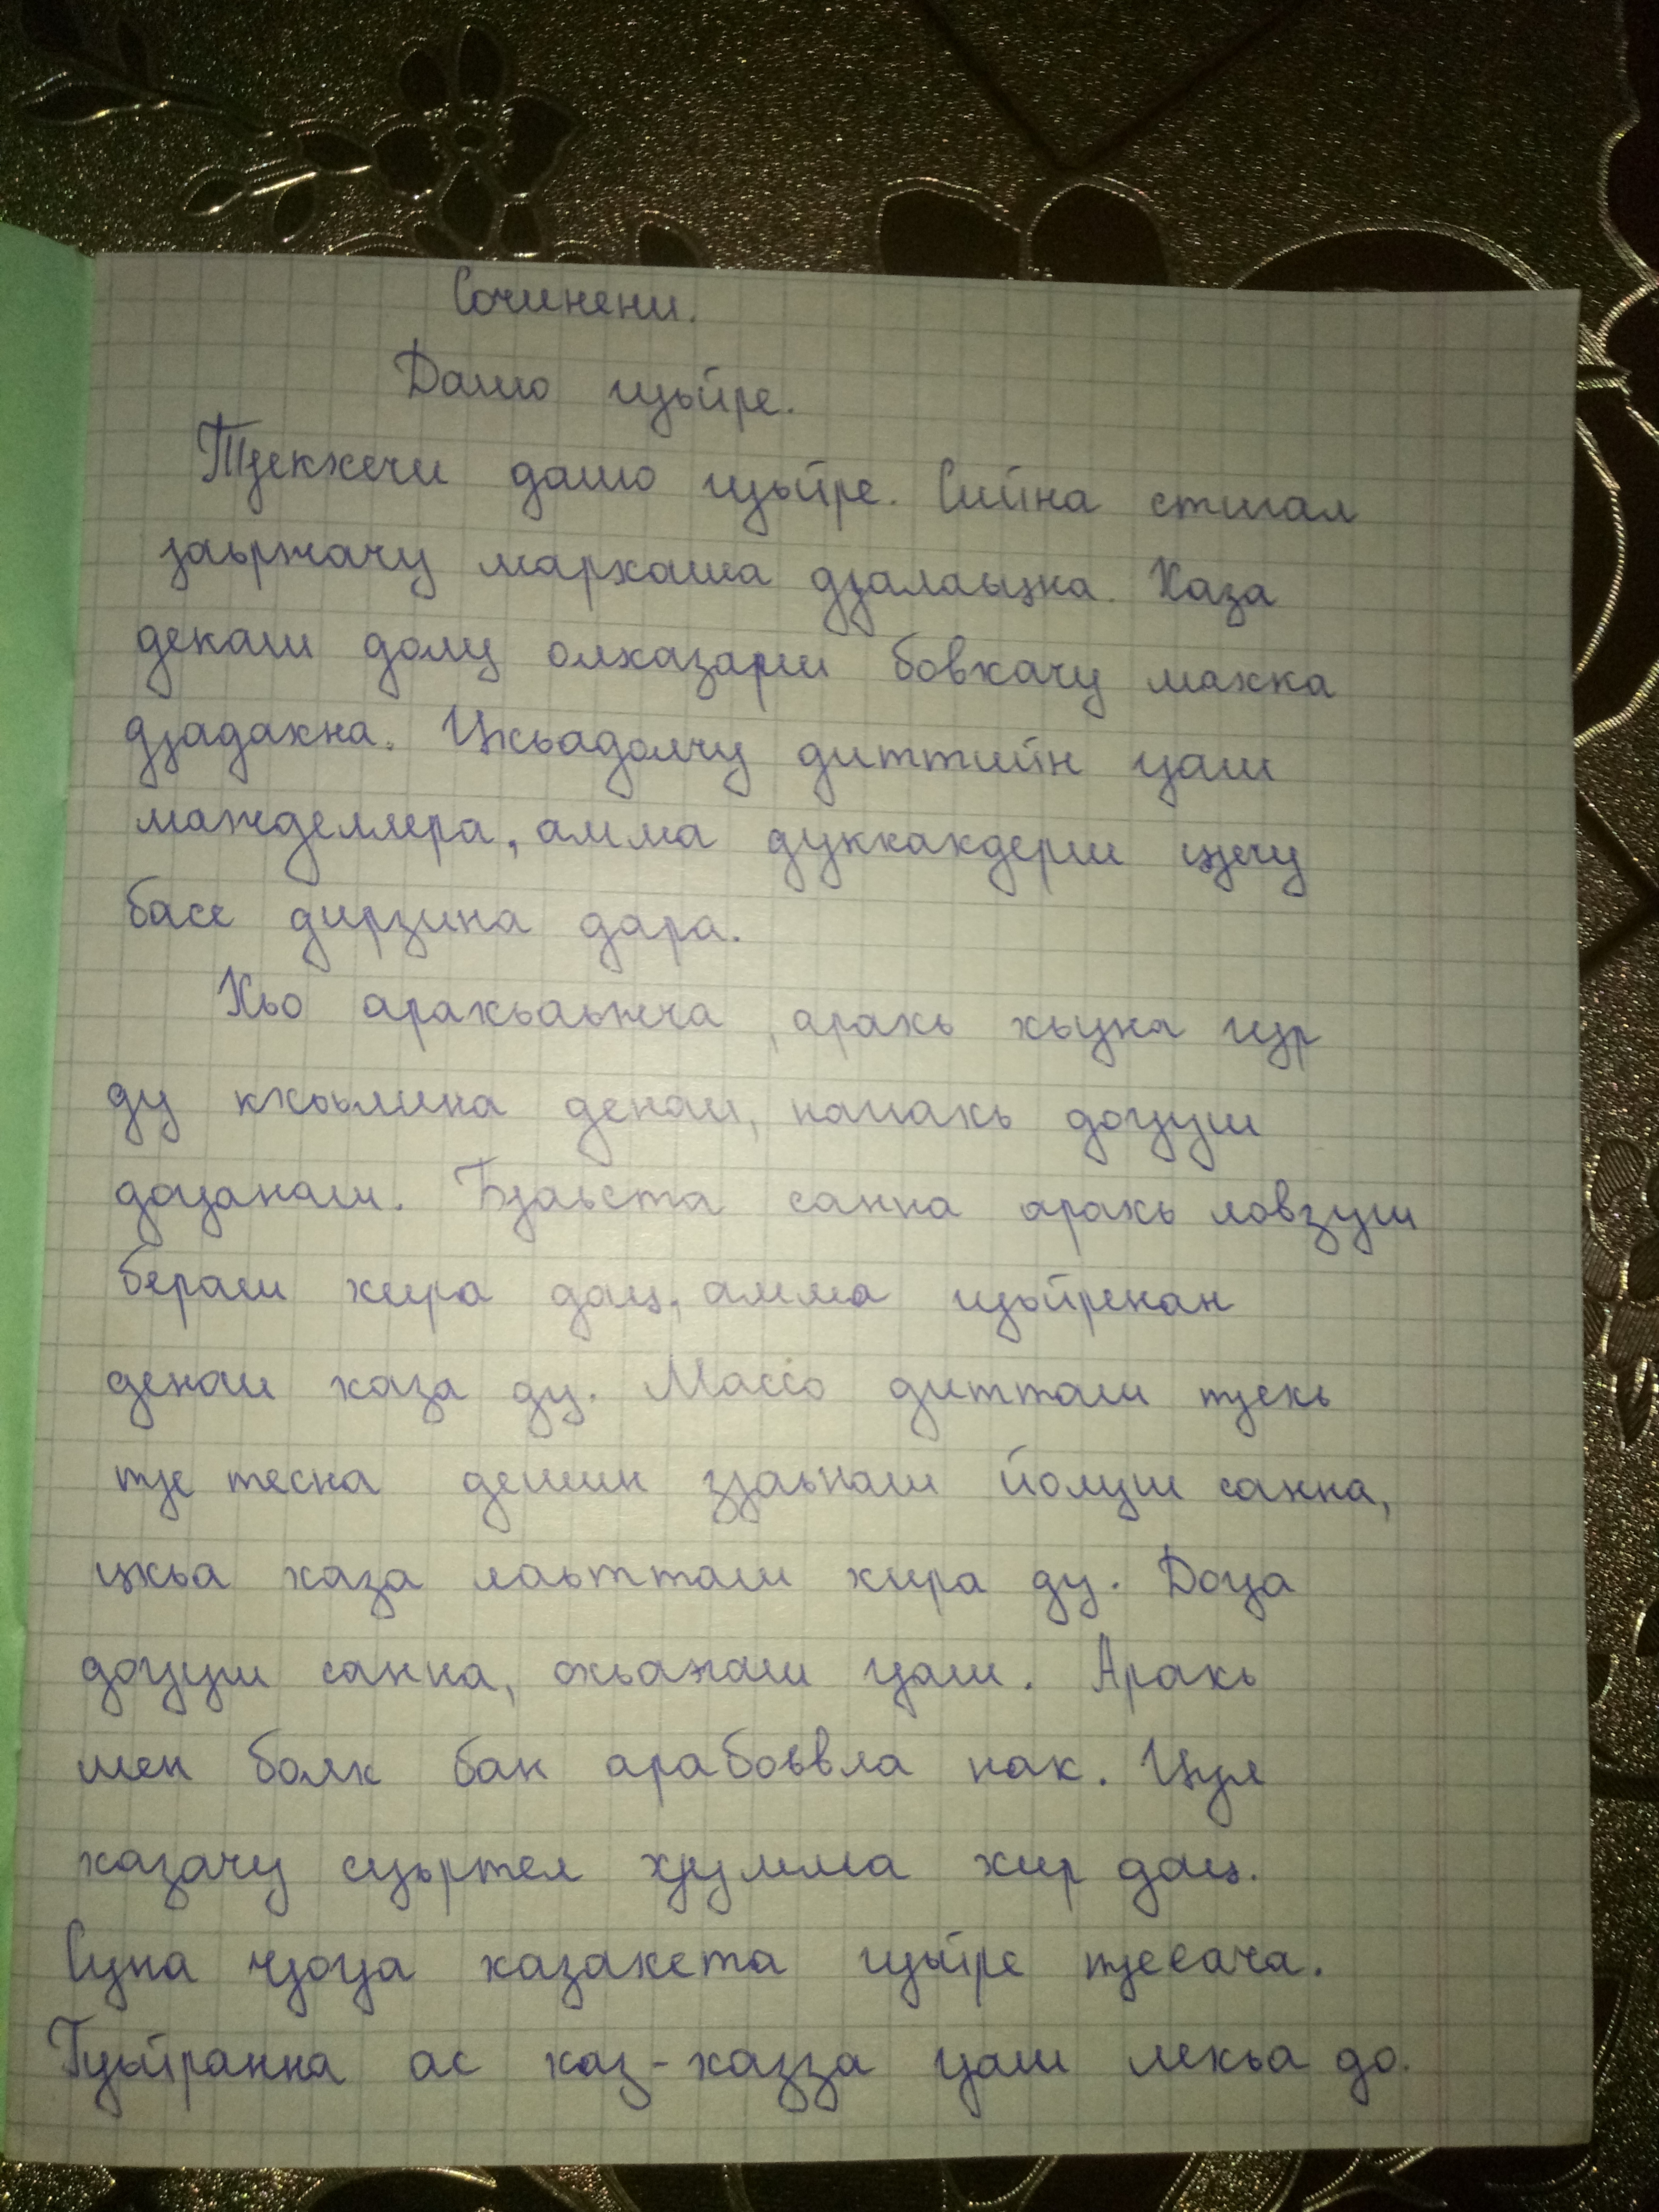 Сочинени.
Дашо гуьйре.
ТӀекхечи дашо гуьйре. Сийна стигал
Ӏаьржачу мархаша дӀалаьцна. Хаза
декаш долу олхазарш бовхачу махка
дӀадахна. Цхьадолчу диттийн гӀаш
мажделлера, амма дуккхахдерш цӀечу
басе дирзина дара.
Хьо арахьаьжча, арахь хьуна гур
ду кхоьлина денаш, догӀуш
догӀанаш. БӀаьста санна арахь ловзуш
бераш хира дац, амма гуьйренан
денаш хаза ду. Массо дитташ тӀехь
тӀе тесна дешин зӀаьнаш йолуш санна,
цхьа хаза лаьтташ хира ду. ДогӀа
догӀуш санна, гӀаш. Арахь
шен болх бан арабоьвла нах. Цул
хазачу суьртел хӀумма хир дац.
Суна чӀогӀа хазахета гуьйре тӀееача.
Гуьйранна ас хаз-хазза гӀаш лехьа до.